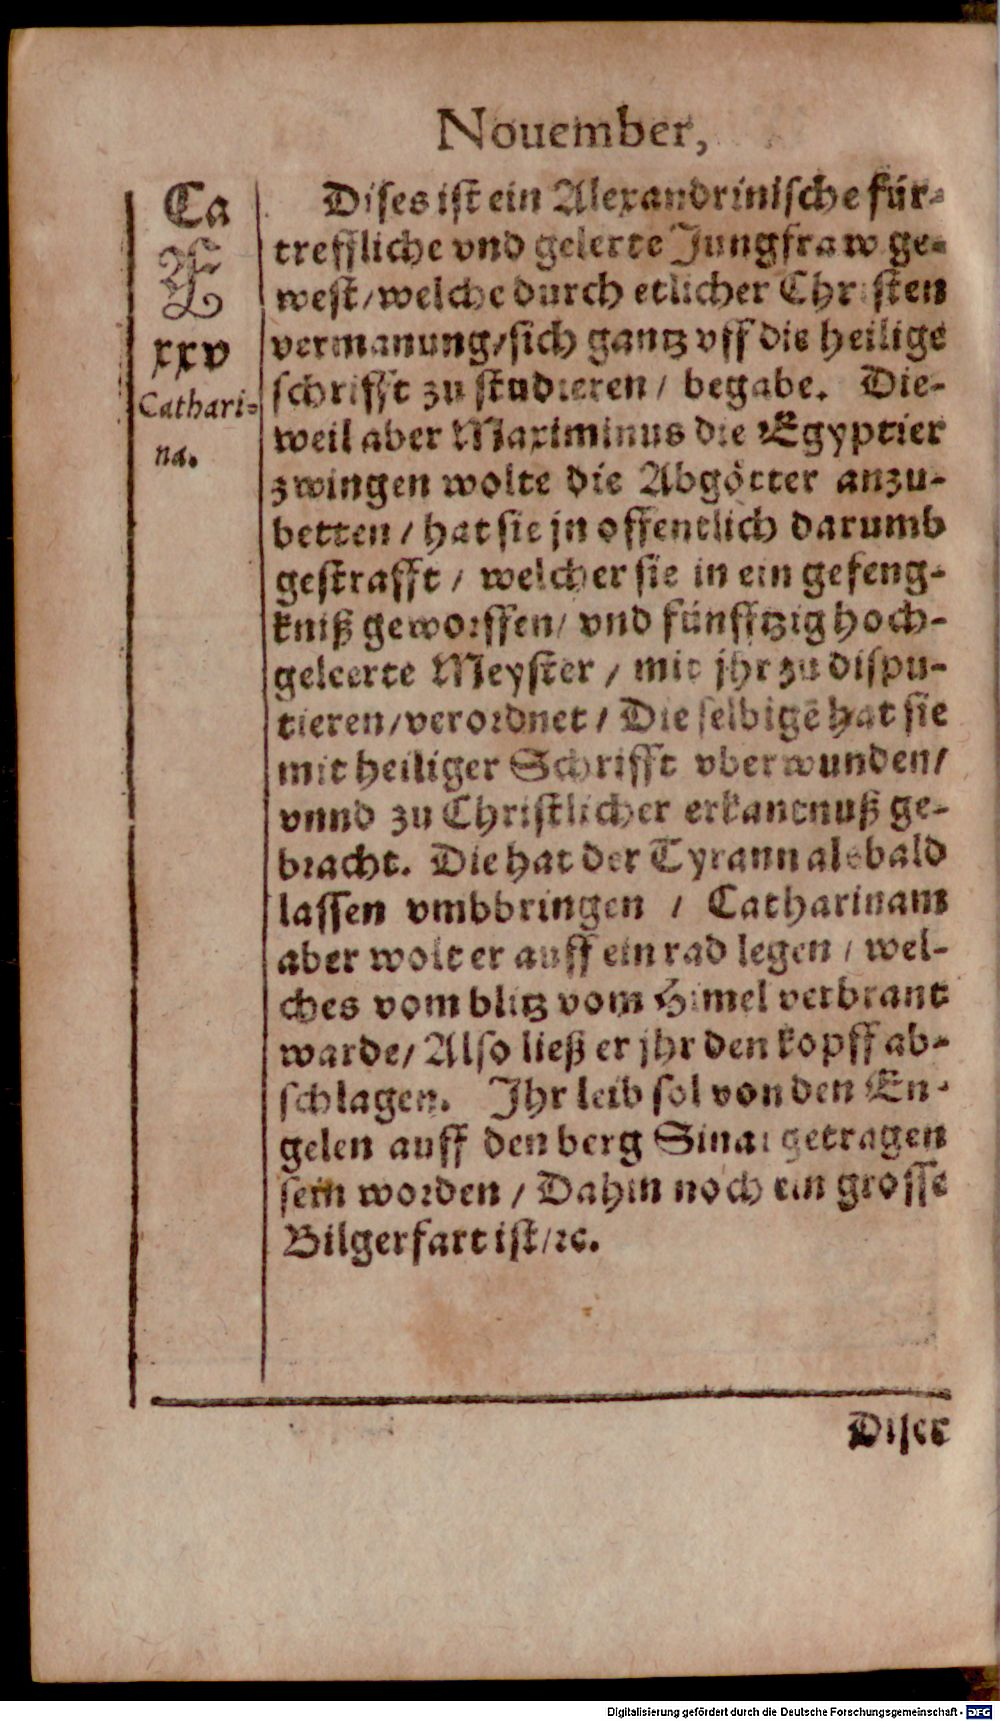 Nouember,
Ca
F
xxv
Cathari-
na.
Dises ist ein Alexandrinische für-
treffliche vnd gelerte Jungfraw ge-
west/welche durch etlicher Christen
vermanung/sich gantz vff die heilige
schrifft zu studieren/ begabe. Die-
weil aber Maximinus die Egyptier
zwingen wolte die Abgötter anzu-
betten/ hat sie jn offentlich darumb
gestrafft/ welcher sie in ein gefeng-
kniß geworffen/ vnd fünfftzig hoch-
geleerte Meyster/ mit jhr zu dispu-
tieren/verordnet/ Die selbigē hat sie
mit heiliger Schrifft vberwunden/
vnnd zu Christlicher erkantnuß ge-
bracht. Die hat der Tyrann alsbald
lassen vmbbringen / Catharinam
aber wolt er auff ein rad legen/ wel-
ches vom blitz vom Himel verbrant
warde/ Also ließ er jhr den kopff ab-
schlagen. Jhr leib sol von den En-
gelen auff den berg Sinai getragen
sein worden/ Dahin noch ein grosse
Bilgerfart ist/ꝛc.
Diser
Digitalisierung gefördert durch die Deutsche Forschungsgemeinschaft - DFG